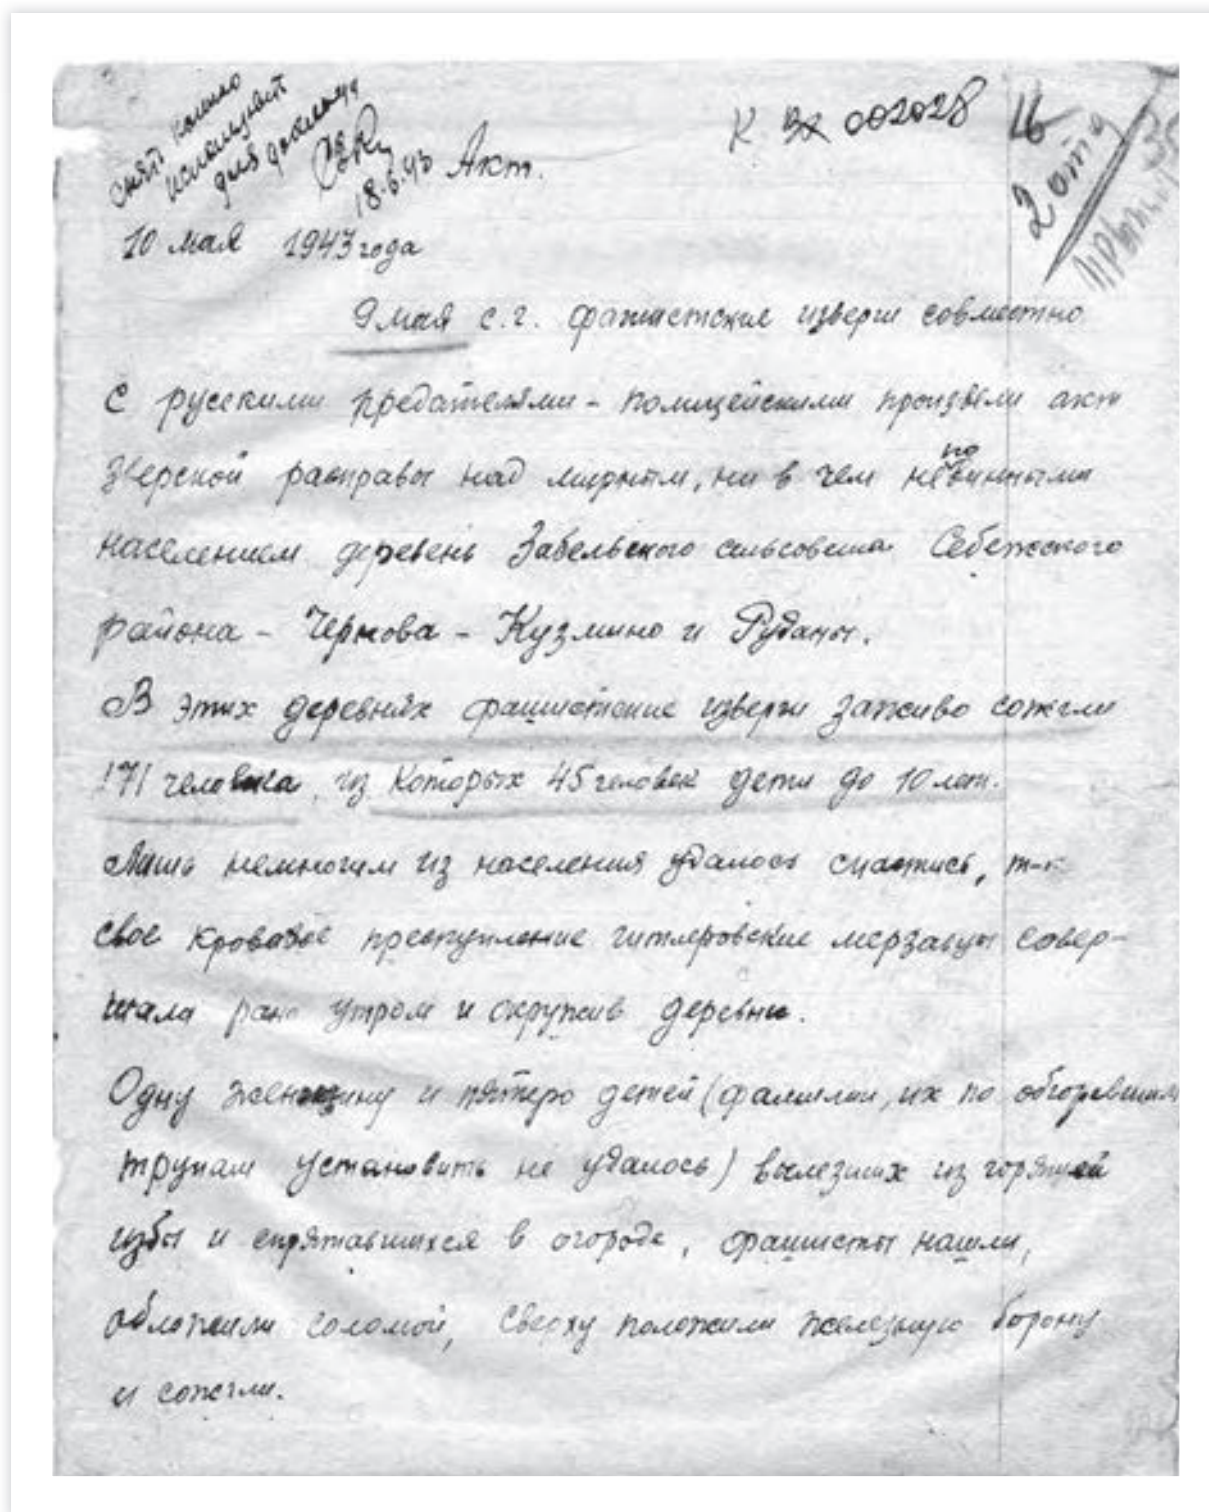 снять копию
для
18.6.43
К вх 002028
16
Акт.
10 мая 1943 года
9 мая с.г. фашистские изверги совместно
с русскими предателями - полицейскими произвели акт
зверской расправы над мирным, ни в чем неповинными
населением деревень Забельского сельсовета Себежского
района - Чернова - Кузмино и Руданы.
В этих деревнях фашистские изверги заживо сожгли
171 человека, из которых 45 человек дети до 10 лет.
Лишь немногим из населения удалось спастись, т-к
свое кровавое преступление гитлеровские мерзавцы совер-
шала рано утром и окружив деревни.
Одну женщину и пятеро детей (фамилии, их по обгоревшим
трупам установить не удалось) вылезших из горящей
избы и спрятавшихся в огороде, фашисты нашли,
обложили соломой, сверху положили железную борону
и сожгли.